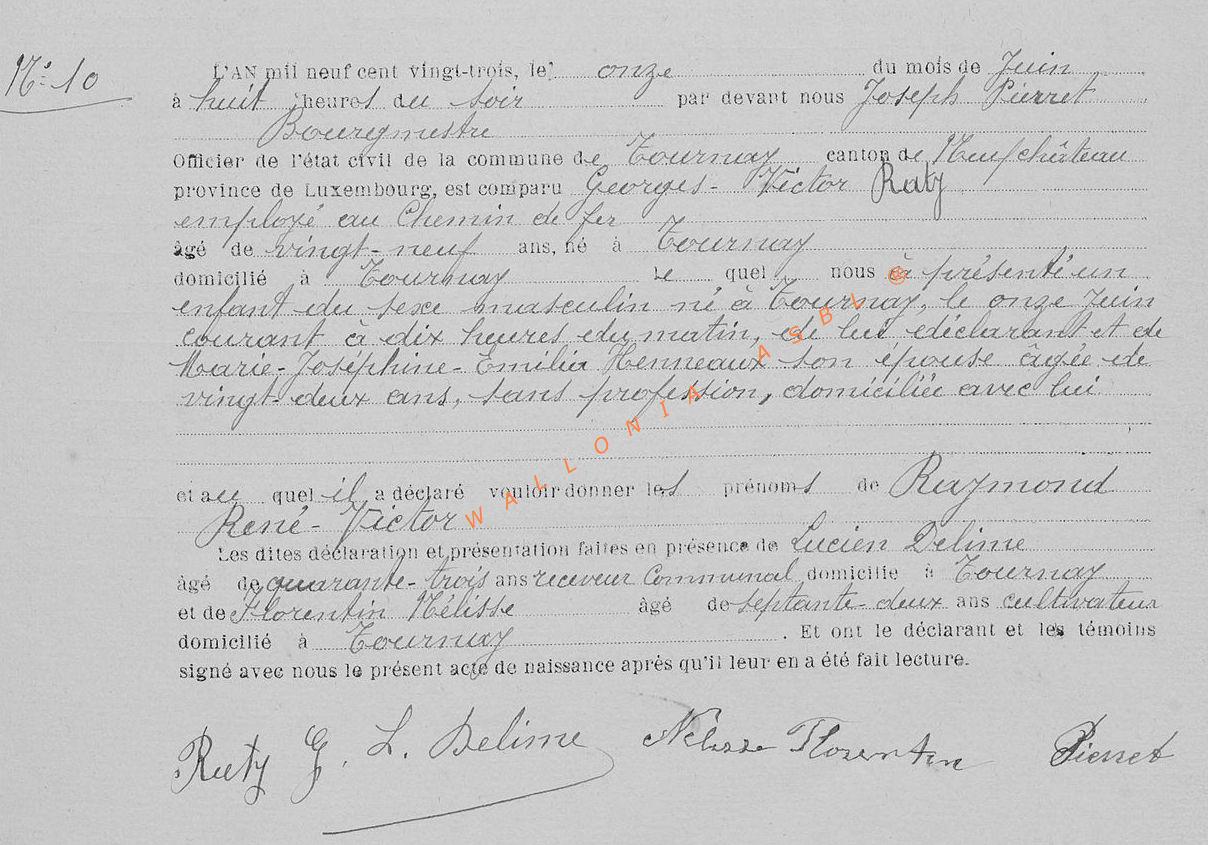 N° 10
L'AN mil neuf cent vingt-trois, le onze du mois de Juin
à huit heures du soir par devant nous Joseph Pierret
Bourgmestre
Officier de l'état civil de la commune de Tournay canton de Neufchâteau
province de Luxembourg, est comparu Georges-Victor Raty
employé au Chemin de fer
âgé de vingt-neuf ans, né à Tournay
domicilié à Tournay le quel nous a présenté un
enfant du sexe masculin né à Tournay, le onze Juin
courant à dix heures du matin, de lui déclarant et de
Marie-Joséphine-Emilia Henneaux son épouse âgée de
vingt-deux ans, sans profession, domiciliée avec lui
et au quel il a déclaré vouloir donner les prénoms de Raymond
René-Victor
Les dites déclaration et présentation faites en présence de Lucien Delime
âgé de quarante-trois ans receveur Communal domicilié à Tournay
et de Florentin Nélisse âgé de septante-deux ans cultivateur
domicilié à Tournay. Et ont le déclarant et les témoins
signé avec nous le présent acte de naissance après qu'il leur en a été fait lecture.
Raty G. L. Delime Nélisse Florentin Pierret
WALLONIA ASBL ©